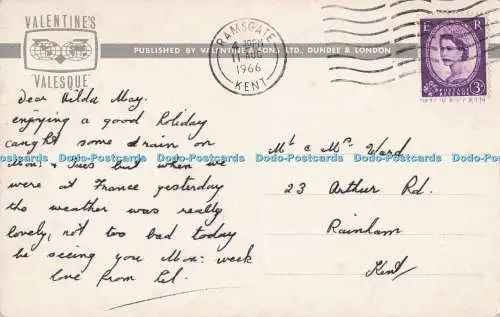 VALENTINE'S
"VALESQUE"
PUBLISHED BY VALENTINE & SONS, LTD., DUNDEE & LONDON
RAMSGATE
11 AUG
1966
KENT
E R
POSTAGE
REVENUE
3D
Dear Hilda May.
enjoying a good holiday
caught some drain on
Mon: & Tues but when we
were at France yesterday
the weather was really
lovely, not too bad today
be seeing you Mon: week
love from
Mr & Mrs Ward
23 Arthur Rd.
Rainham
Kent
Dodo-Postcards Dodo-Postcards Dodo-Postcards Dodo-Postcards Dodo-Postcards